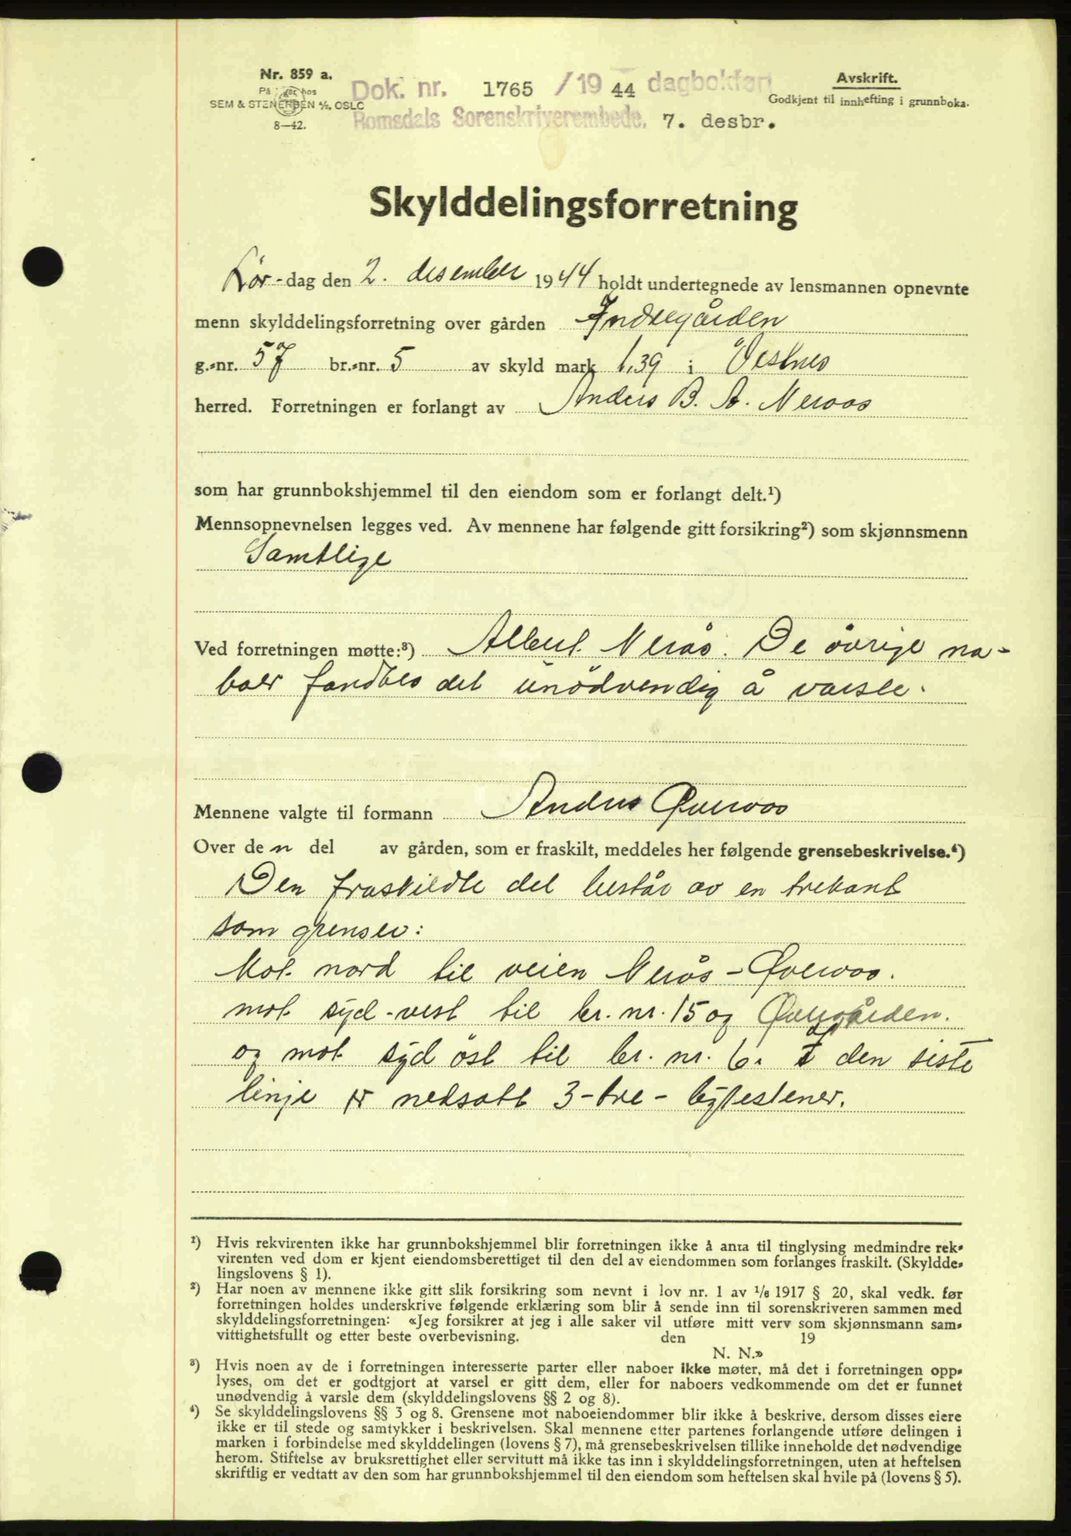 Nr. 859 a.
SEM & STENERSEN A/S, OSLO
8—42.
Dok. nr. 1765 /1944 dagbokført
Romsdals Sorenskriverembede. 7. desbr.
Avskrift.
Godkjent til innhefting i grunnboka.
Skylddelingsforretning
Lør-dag den 2. desember 1944 holdt undertegnede av lensmannen opnevnte
menn skylddelingsforretning over gården Indregården
g.-nr. 57 br.-nr. 5 av skyld mark 1,39 i Vestnes
herred. Forretningen er forlangt av Anders B. A. Neraas
som har grunnbokshjemmel til den eiendom som er forlangt delt.¹)
Mennsopnevnelsen legges ved. Av mennene har følgende gitt forsikring²) som skjønnsmenn
Samtlige
Ved forretningen møtte:³) Albert Nerås. De øvrige na-
boer fandtes det unødvendig å varsle.
Mennene valgte til formann Anders Øveraas
Over den del av gården, som er fraskilt, meddeles her følgende grensebeskrivelse.⁴)
Den fraskildte del består av en trekant
som grenser:
Mot nord til veien Nerås - Øveraas.
mot syd-vest til br. nr. 15 og Øvregården.
og mot syd öst til br. nr. 6. I den siste
linje er nedsatt 3-tre- bytestener.
¹) Hvis rekvirenten ikke har grunnbokshjemmel blir forretningen ikke å anta til tinglysing medmindre rek-
virenten ved dom er kjent eiendomsberettiget til den del av eiendommen som forlanges fraskilt. (Skyldde-
lingslovens § 1).
²) Har noen av mennene ikke gitt slik forsikring som nevnt i lov nr. 1 av 1/6 1917 § 20, skal vedk. før
forretningen holdes underskrive følgende erklæring som blir å sende inn til sorenskriveren sammen med
skylddelingsforretningen: «Jeg forsikrer at jeg i alle saker vil utføre mitt verv som skjønnsmann sam-
vittighetsfullt og etter beste overbevisning. den 19
N. N.»
³) Hvis noen av de i forretningen interesserte parter eller naboer ikke møter, må det i forretningen opp-
lyses, om det er godtgjort at varsel er gitt dem, eller for naboers vedkommende om det er funnet
unødvendig å varsle dem (skylddelingslovens §§ 2 og 8).
⁴) Se skylddelingslovens §§ 3 og 8. Grensene mot naboeiendommer blir ikke å beskrive, dersom disses eiere
ikke er til stede og samtykker i beskrivelsen. Skal mennene etter partenes forlangende utføre delingen i
marken i forbindelse med skylddelingen (lovens § 7), må grensebeskrivelsen tillike inneholde det nødvendige
herom. Stiftelse av bruksrettighet eller servitutt må ikke tas inn i skylddelingsforretningen, uten at heftelsen
skriftlig er vedtatt av den som har grunnbokshjemmel til den eiendom som heftelsen skal hvile på (lovens § 5).